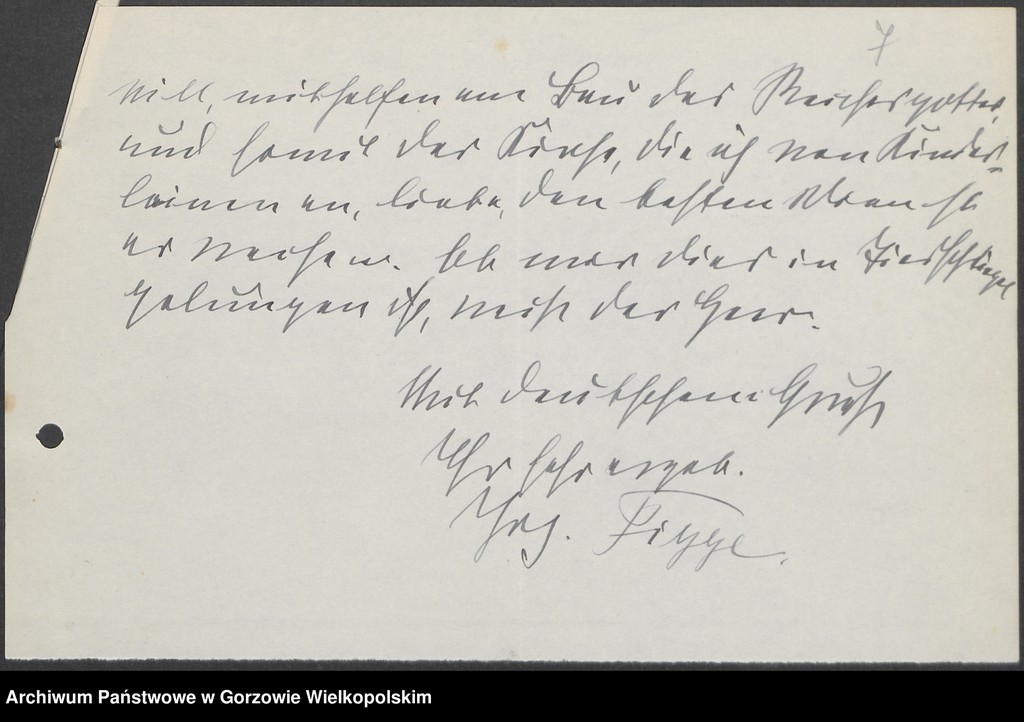 7
will, mithelfen am Bau des Reiches Gottes,
und somit der Kirche, die ich von Kindes-
beinen an, liebe, den besten Dienst
er weisen. Ob mir dies in Tirschtiegel
gelungen ist, weiß der Herr.
Mit deutschem Gruß
Ihr sehr ergeb.
Archiwum Państwowe w Gorzowie Wielkopolskim